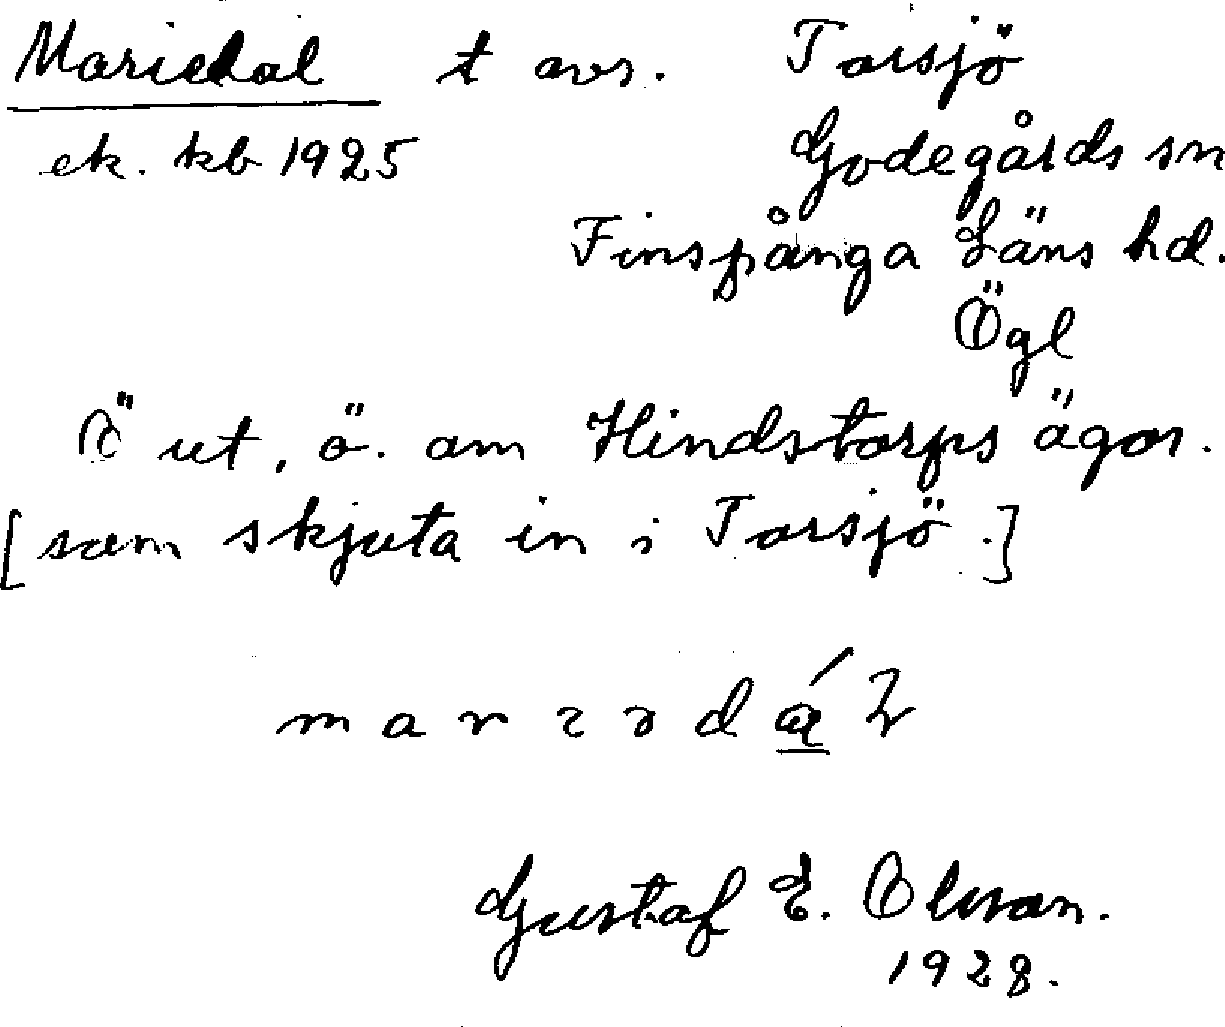 Mariedal t avs. Torsjö
ek. kb 1925 Godegårds sn
Finspånga Läns hd.
Ögl
Ö ut, ö. om Hindstorps ägor.
[som skjuta in i Torsjö.]
Gustaf E. Olsson.
1928.